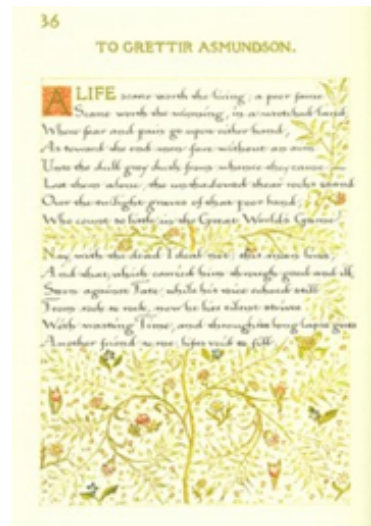 36
TO GRETTIR ASMUNDSON.
A LIFE scarce worth the living, a poor fame
Scarce worth the winning, in a wretched land,
Where fear and pain go upon either hand,
As toward the end men fare without an aim
Unto the dull grey dark from whence they came
Let them alone, the unshadowed sheer rocks stand
Over the twilight graves of that poor band,
Who count so little in the Great World's Game!
Nay, with the dead I deal not; this man lives,
And that which carried him through good and ill,
Stern against Fate, while his voice echoed still
From rock to rock, now he lies silent strives
With wasting Time, and through its long lapse gives
Another friend to me, life's void to fill.